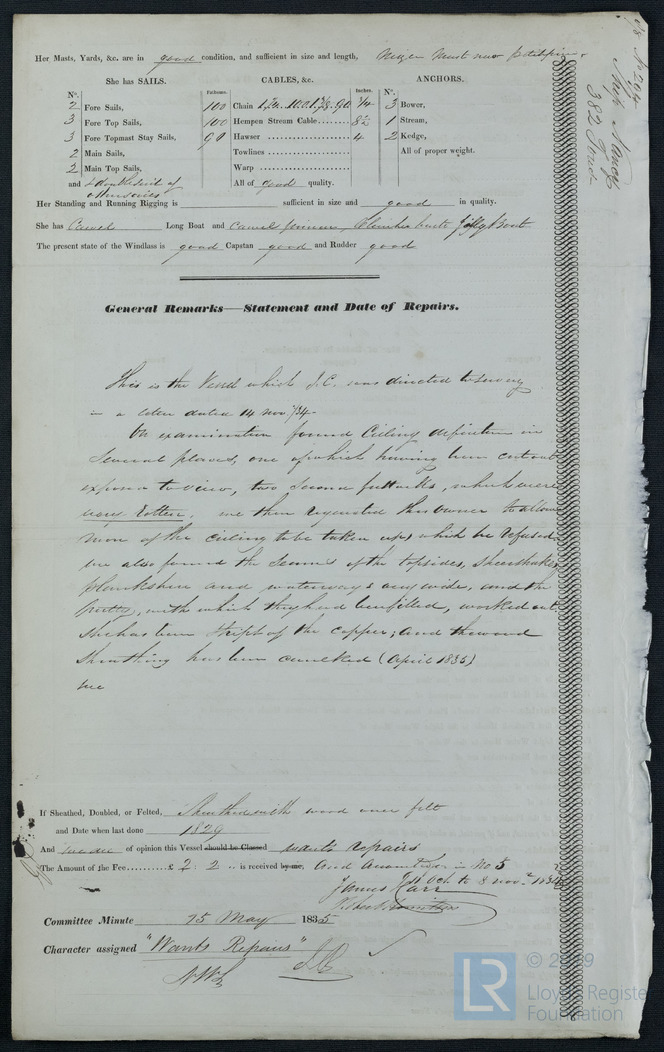 No 204
Ship Nancy
382 Tons
Her Masts, Yards, &c. are in good condition, and sufficient in size and length, Mizen Mast new
She has SAILS. CABLES, &c. ANCHORS.
No. Fathoms. Inches. No.
2 Fore Sails, 100 Chain 3 Bower,
3 Fore Top Sails, 100 Hempen Stream Cable........ 8½ 1 Stream,
3 Fore Topmast Stay Sails, 90 Hawser .................. 4 2 Kedge,
2 Main Sails, Towlines .................. All of proper weight.
2 Main Top Sails, Warp ..................
and others All of good quality.
Her Standing and Running Rigging is sufficient in size and good in quality.
She has Long Boat and Jolly Boat
The present state of the Windlass is good Capstan good and Rudder good
General Remarks—Statement and Date of Repairs.
This is the Vessel which J.C. was directed to survey
in a letter dated 14 Nov /34
On examination found Ceiling defective in
Several places, one of which having been cut out
exposed to view, two Second futtocks, which were
very rotten, we then requested the owner to allow
more of the ceiling to be taken up, which he refused
we also found the Seams of the topsides, Sheerstrakes
plankshire and waterways very wide, and the
putty, with which they had been filled, worked out
She has been Stript of the copper; and the wood
Sheathing has been caulked (April 1835)
we
If Sheathed, Doubled, or Felted, Sheathed with wood over felt
and Date when last done 1829
And we are of opinion this Vessel should be Classed wants repairs
The Amount of the Fee..........£ 2 : 2 .. is received by me, and in No 5
James Carr Oct to 8 Nov
Committee Minute 15 May 1835
Character assigned "Wants Repairs"
© 2019
LR
Lloyd's Register
Foundation